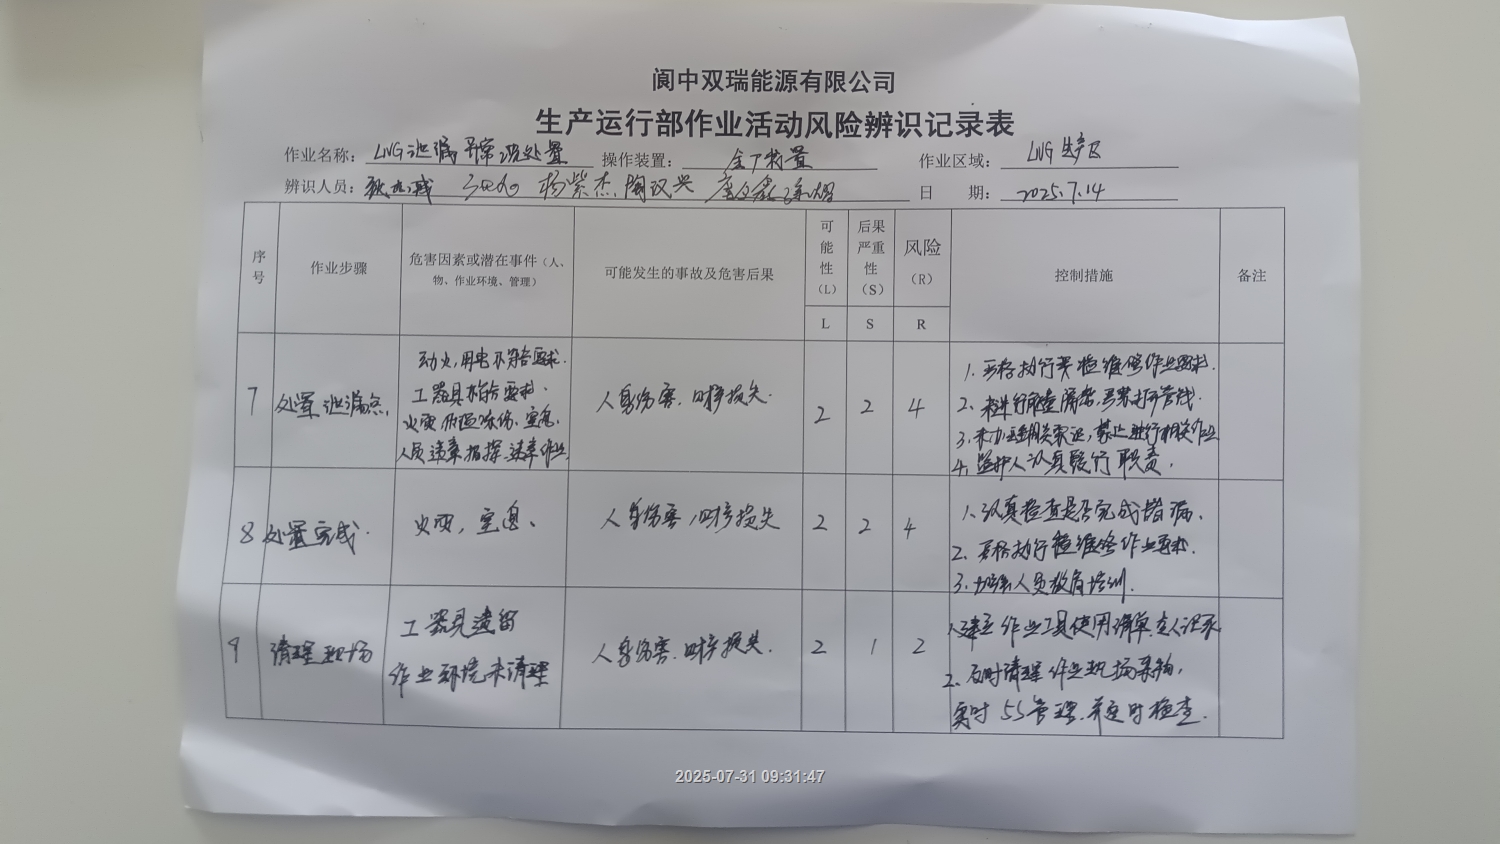 阆中双瑞能源有限公司
生产运行部作业活动风险辨识记录表
作业名称： LNG泄漏异常现处置 操作装置： 全厂装置 作业区域： LNG生产区
辨识人员： 杨紫杰 陶汉兴 日 期： 2025.7.14
序号 作业步骤 危害因素或潜在事件（人、物、作业环境、管理） 可能发生的事故及危害后果 可能性（L） 后果严重性（S） 风险（R） 控制措施 备注
L S R
7 处置泄漏点 人身伤害、财产损失. 2 2 4
动火,用电不符合要求.
工器具不符合要求.
火灾 低温冻伤、窒息.
人员违章指挥 违章作业
1. 严格执行 检维修作业要求.
2. 未进行 严禁打开管线.
3. 未办理相关票证,禁止进行相关作业
4. 监护人认真履行职责.
8 处置完成. 火灾,窒息、 人身伤害,财产损失 2 2 4
1. 认真检查是否完成堵漏.
2. 严格执行检维修作业要求.
3. 加强人员教育培训.
9 清理现场 人身伤害.财产损失. 2 1 2
工器具遗留
作业环境未清理
1.建立作业工具使用清单 专人记录
2. 及时清理作业现场杂物,
实时5S管理.并定时检查.
2025-07-31 09:31:47